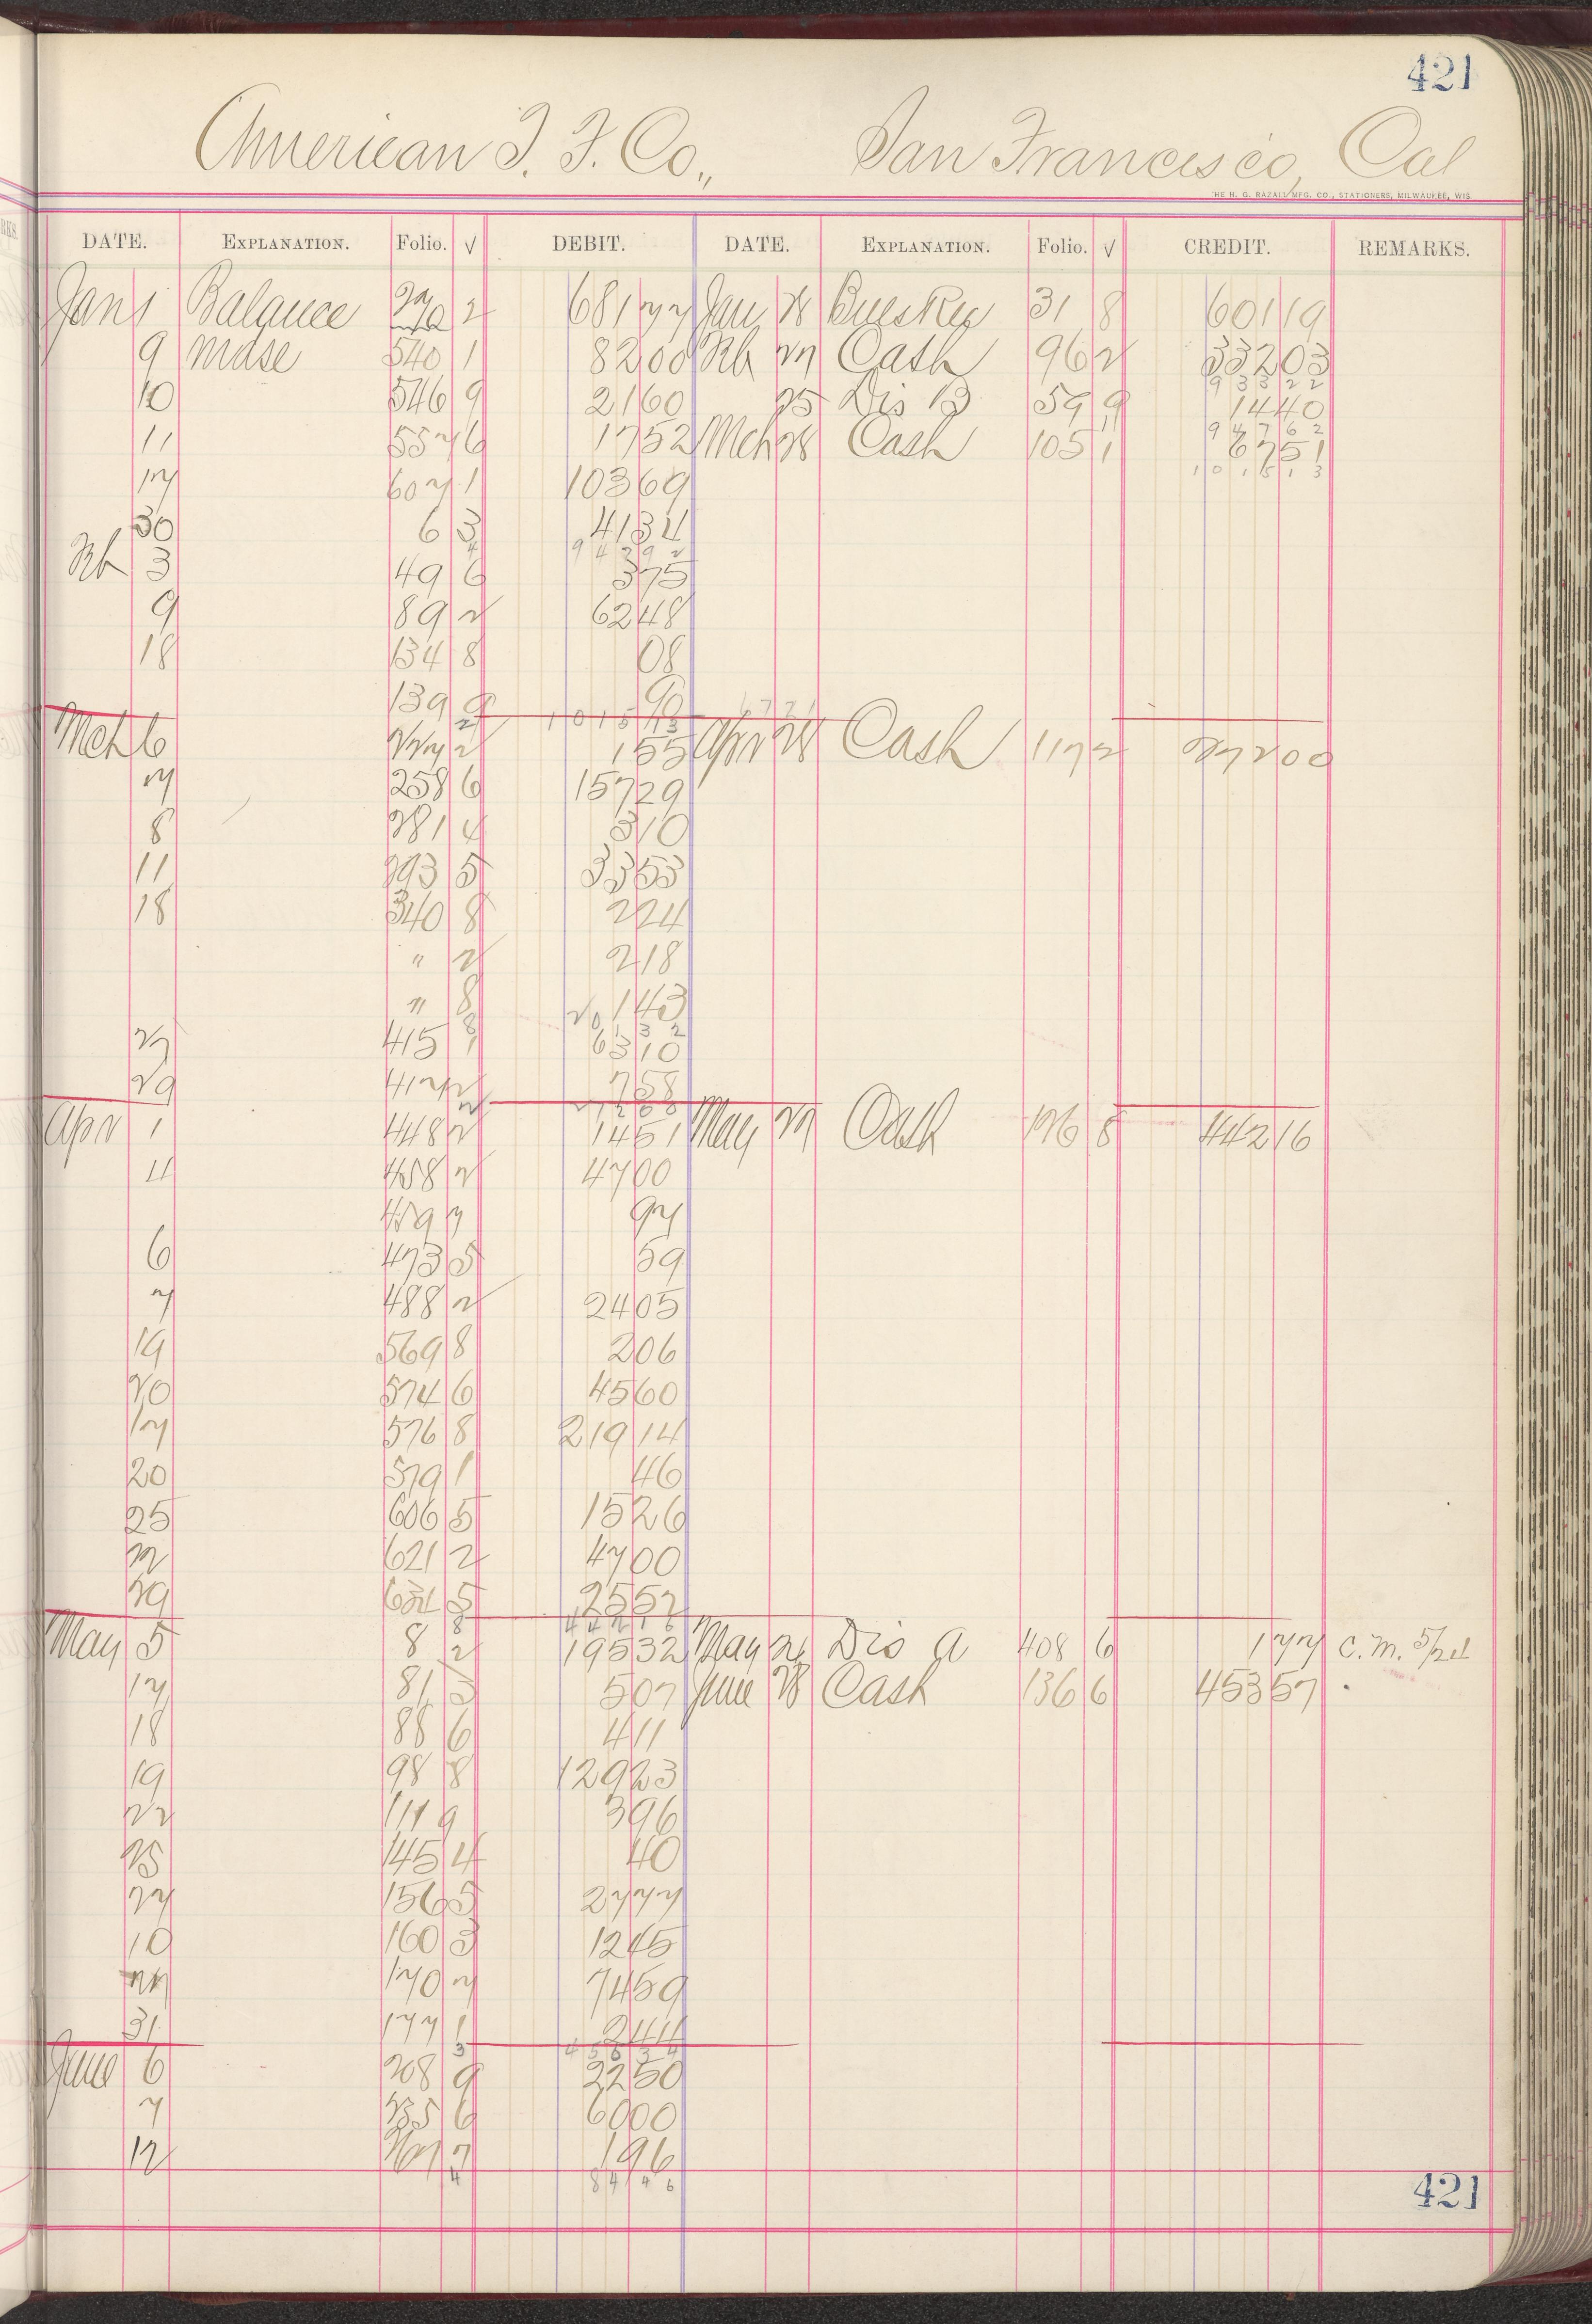 421
American T. F. Co., San Francisco, Cal
THE N. G. RAZALL MFG. CO., STATIONERS, MILWAUKEE, WIS.
DATE. EXPLANATION. Folio. √ DEBIT. DATE. EXPLANATION. Folio. √ CREDIT. REMARKS.
Jan 1 Balance 2 681 77 Jan 28 31 8 601 19
9 mdse 540 1 82 00 Feb 27 Cash 96 2 332 03
933 22
10 546 9 21 60 25 Dis B 59 9 14 40
947 62
11 557 6 17 52 Mch 28 Cash 105 1 67 51
1015 13
17 607 1 103 69
30 6 3 41 34
4 94 7 9 2
Feb 3 49 6 3 75
9 89 2 62 48
18 134 8 08
139 9 90
2 1015 13
Mch 6 227 2 1 55 Apr 28 Cash 117 2 272 00
7 258 6 157 29
8 281 4 3 10
11 293 5 33 53
18 340 8 2 24
" 2 2 18
" 8 1 43
27 415 7 63 10
29 417 2 7 58
Apr 1 448 2 14 51 May 27 Cash 126 8 442 16
4 458 2 47 00
459 7 97
6 473 5 59
7 488 2 24 05
19 569 8 2 06
20 574 6 45 60
17 576 8 219 14
20 579 1 46
25 606 5 15 26
27 621 2 47 00
29 634 5 25 52
8 442 16
May 5 8 2 195 32 May 26 Dis A 408 6 1 77 C.M. 5/21
17 81 3 5 07 June 28 Cash 136 6 453 57
18 88 6 4 11
19 98 8 129 23
22 111 9 3 96
25 145 4 40
27 156 5 27 77
10 160 3 12 45
170 7 74 59
31 177 1 2 44
3 455 34
June 6 208 9 22 50
7 235 6 60 00
12 7 1 96
4 84 46
421